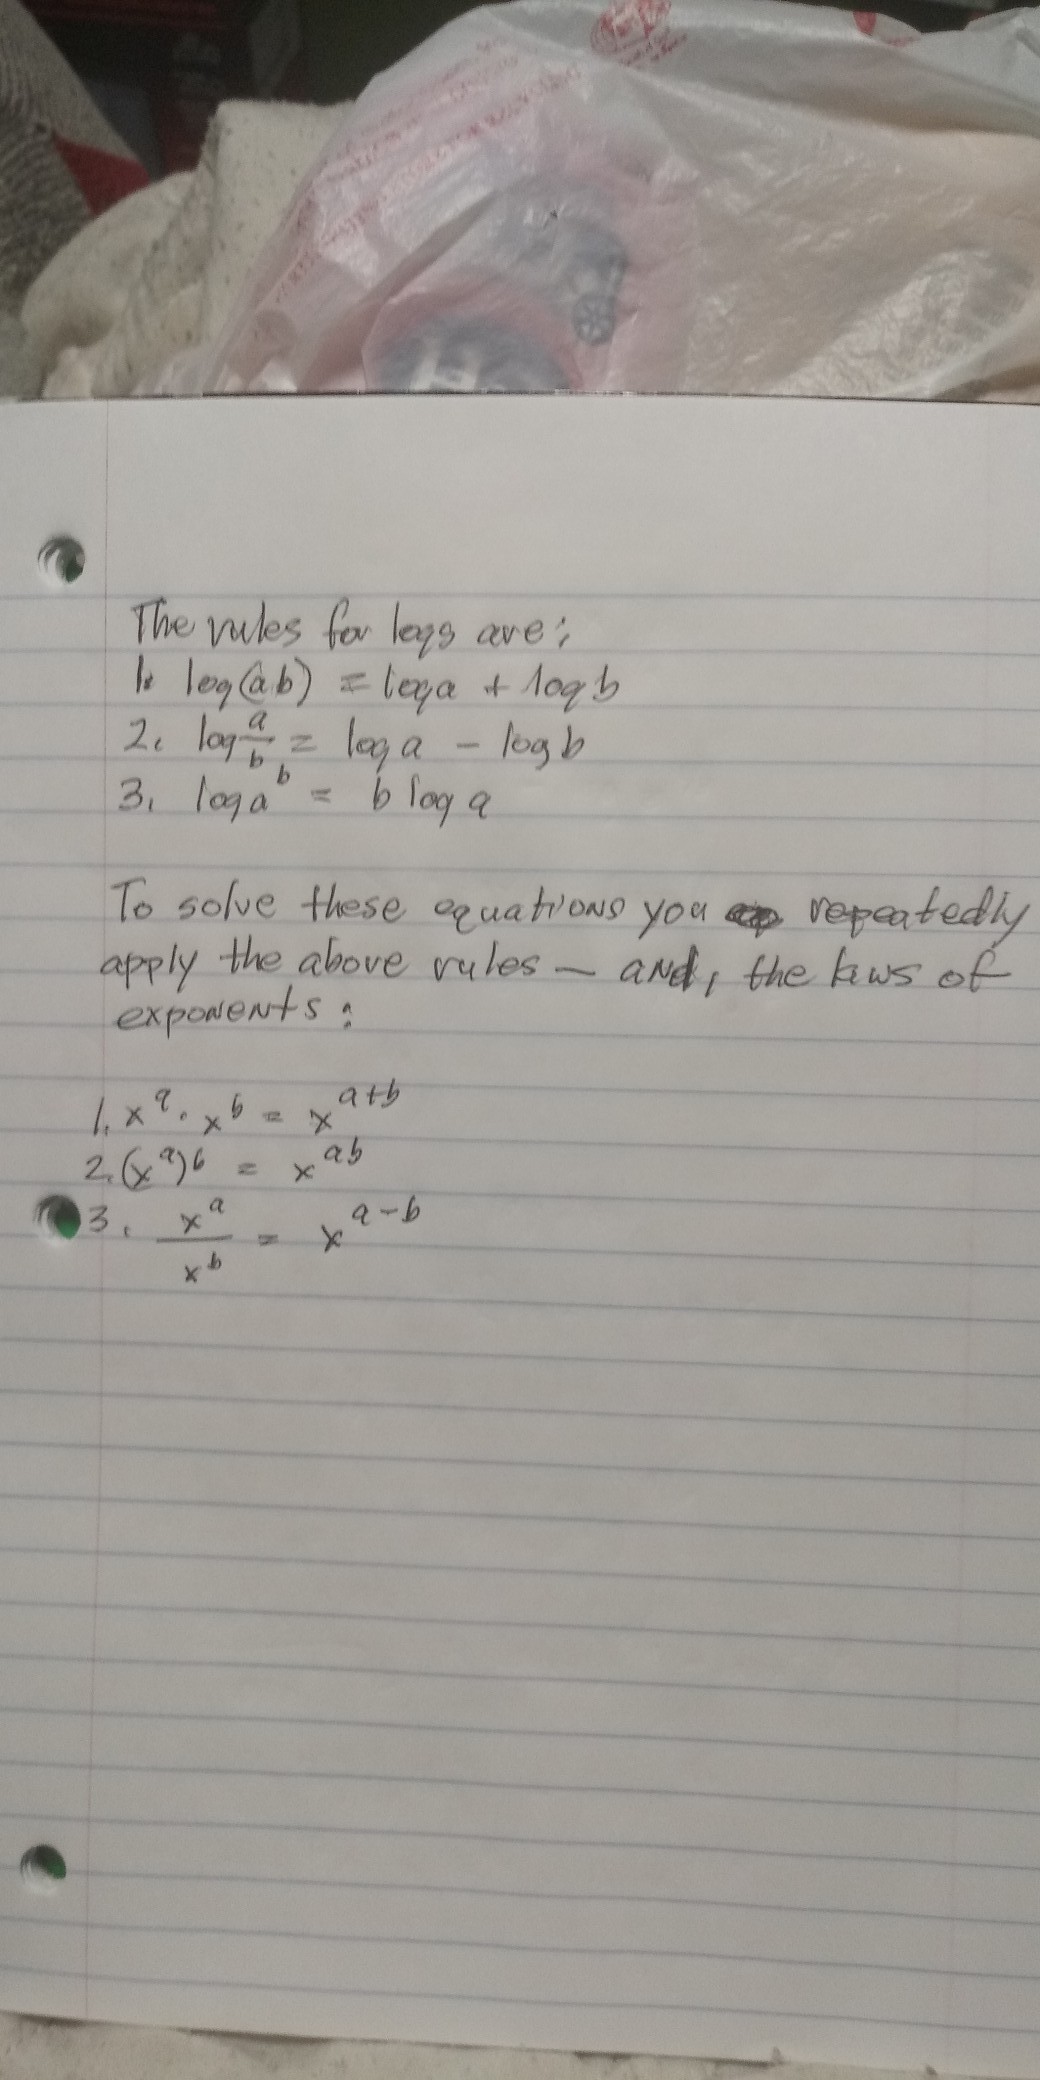 The rules for logs are:
1. log(ab) = log a + log b
2. log a/b = log a - log b
3. log a^b = b log a
To solve these equations you repeatedly
apply the above rules — and, the laws of
exponents:
1. x^a · x^b = x^(a+b)
2. (x^a)^b = x^(ab)
3. x^a / x^b = x^(a-b)